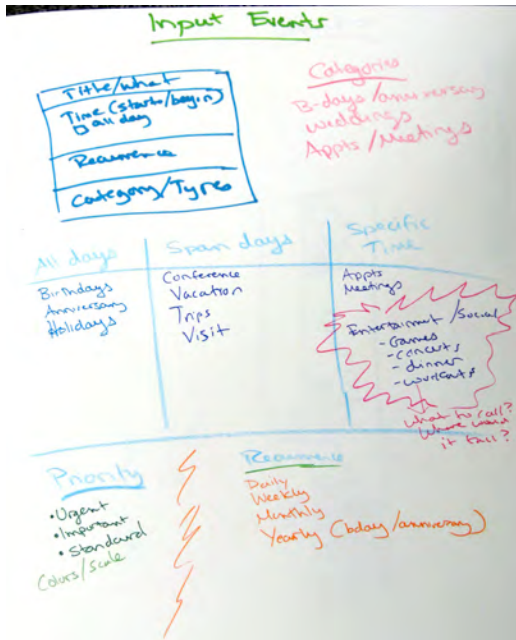 Input Events
Title/what
Time (starts/begin)
all day
Recurrence
Category/Types
Categories
B-days/anniversary
Weddings
Appts/Meetings
All days
Birthdays
Anniversary
Holidays
Span days
Conference
Vacation
Trips
Visit
Specific
Time
Appts
Meetings
Entertainment/Social
- Games
- concerts
- dinner
- workouts
what to call?
Where would
it fall?
Priority
• Urgent
• Important
• Standard
Colors/Scale
Recurrence
Daily
Weekly
Monthly
Yearly (bday/anniversary)